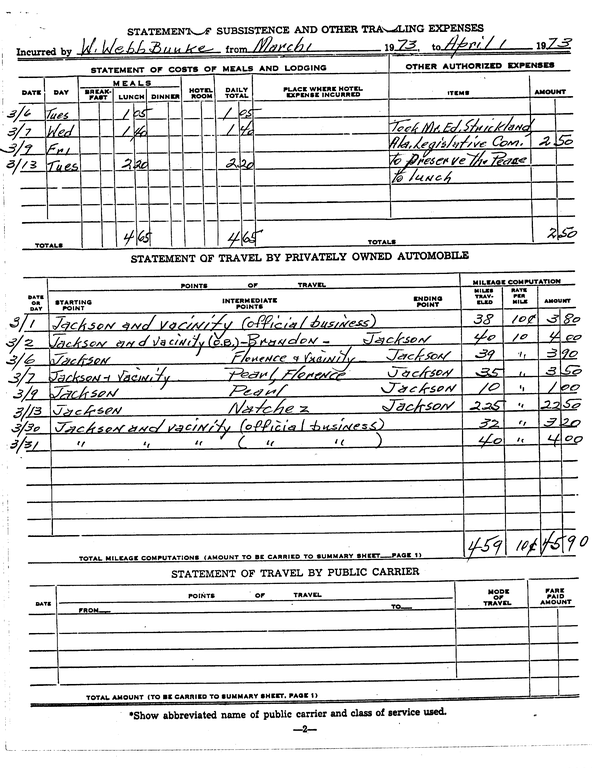 STATEMENT OF SUBSISTENCE AND OTHER TRAVELING EXPENSES
Incurred by W. Webb Burke from March 1 1973, to April 1 1973
STATEMENT OF COSTS OF MEALS AND LODGING OTHER AUTHORIZED EXPENSES
MEALS
DATE DAY BREAK-FAST LUNCH DINNER HOTEL ROOM DAILY TOTAL PLACE WHERE HOTEL EXPENSE INCURRED ITEMS AMOUNT
3/6 Tues 1 05 1 05
3/7 Wed 1 40 1 40 Took Mr. Ed. Strickland
3/9 Fri Ala. Legislative Com. 2 50
3/13 Tues 2 20 2 20 to preserve the Peace
to lunch
TOTALS 4 65 4 65 TOTALS 2 50
STATEMENT OF TRAVEL BY PRIVATELY OWNED AUTOMOBILE
POINTS OF TRAVEL MILEAGE COMPUTATION
DATE OR DAY STARTING POINT INTERMEDIATE POINTS ENDING POINT MILES TRAV-ELED RATE PER MILE AMOUNT
3/1 Jackson and vacinity (official business) 38 10¢ 3 80
3/2 Jackson and vacinity (O.B.) - Brandon - Jackson 40 10 4 00
3/6 Jackson Florence & vacinity Jackson 39 " 3 90
3/7 Jackson & vacinity Pearl, Florence Jackson 35 " 3 50
3/9 Jackson Pearl Jackson 10 " 1 00
3/13 Jackson Natchez Jackson 225 " 22 50
3/30 Jackson and vacinity (official business) 32 " 3 20
3/31 " " " ( " " ) 40 " 4 00
TOTAL MILEAGE COMPUTATIONS (AMOUNT TO BE CARRIED TO SUMMARY SHEET PAGE 1) 459 10¢ 45 90
STATEMENT OF TRAVEL BY PUBLIC CARRIER
DATE POINTS OF TRAVEL MODE OF TRAVEL FARE PAID AMOUNT
FROM TO
TOTAL AMOUNT (TO BE CARRIED TO SUMMARY SHEET. PAGE 1)
*Show abbreviated name of public carrier and class of service used.
—2—